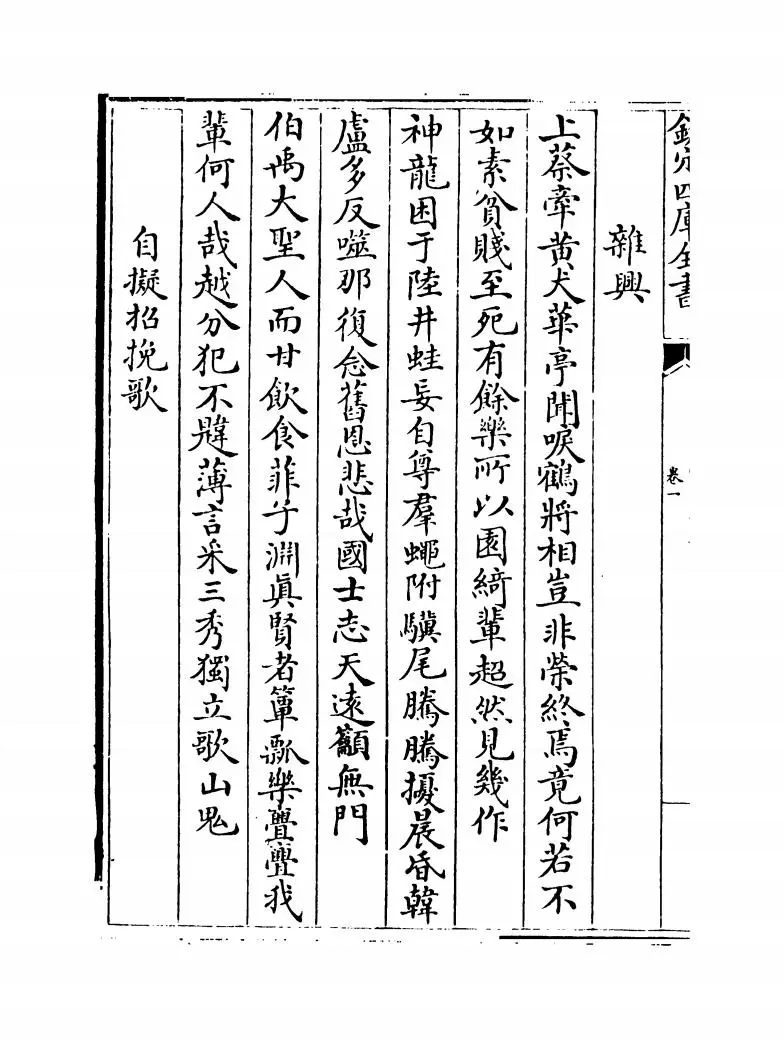 欽定四庫全書
卷一
雜興
上蔡牽黄犬華亭聞唳鶴將相豈非榮終焉竟何若不
如素貧賤至死有餘樂所以園綺輩超然見幾作
神龍困于陸井蛙妄自尊羣蠅附驥尾騰騰擾晨昏韓
盧多反噬那復念舊恩悲哉國士志天遠籲無門
伯禹大聖人而甘飲食菲子淵眞賢者簞瓢樂亹亹我
輩何人哉越分犯不韙薄言采三秀獨立歌山鬼
自擬招挽歌